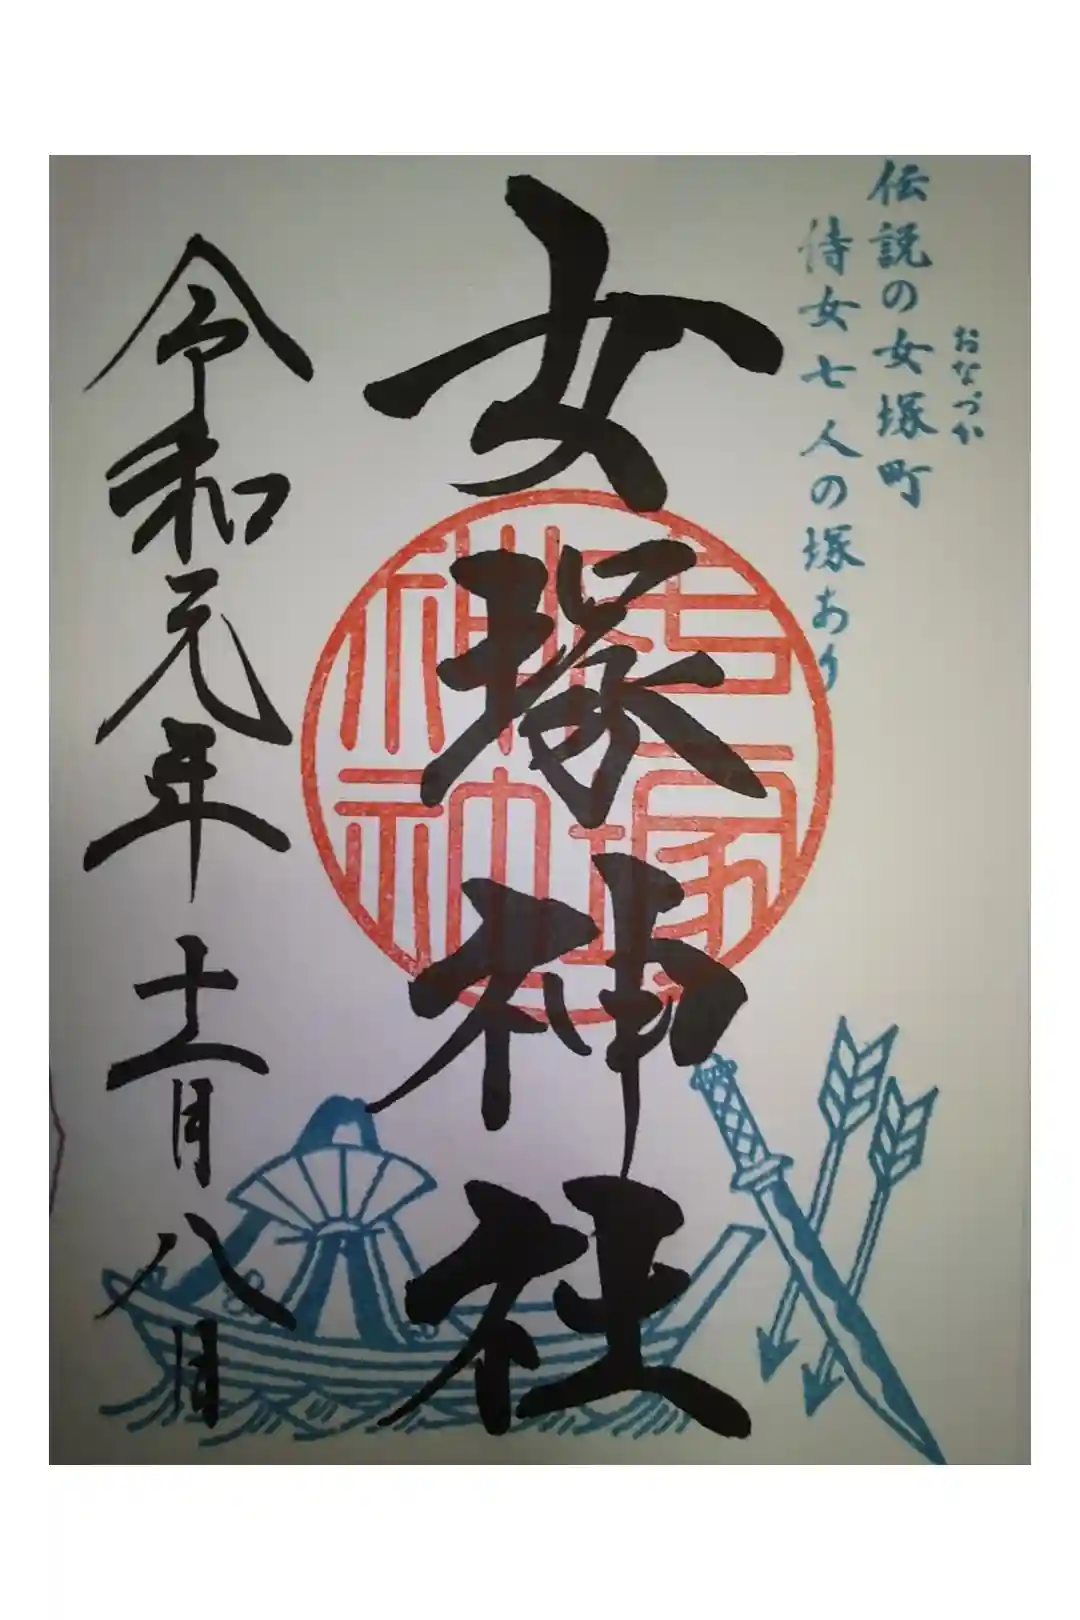 おなづか
伝説の女塚町
侍女七人の塚あり
女塚神社
令和元年十一月八日